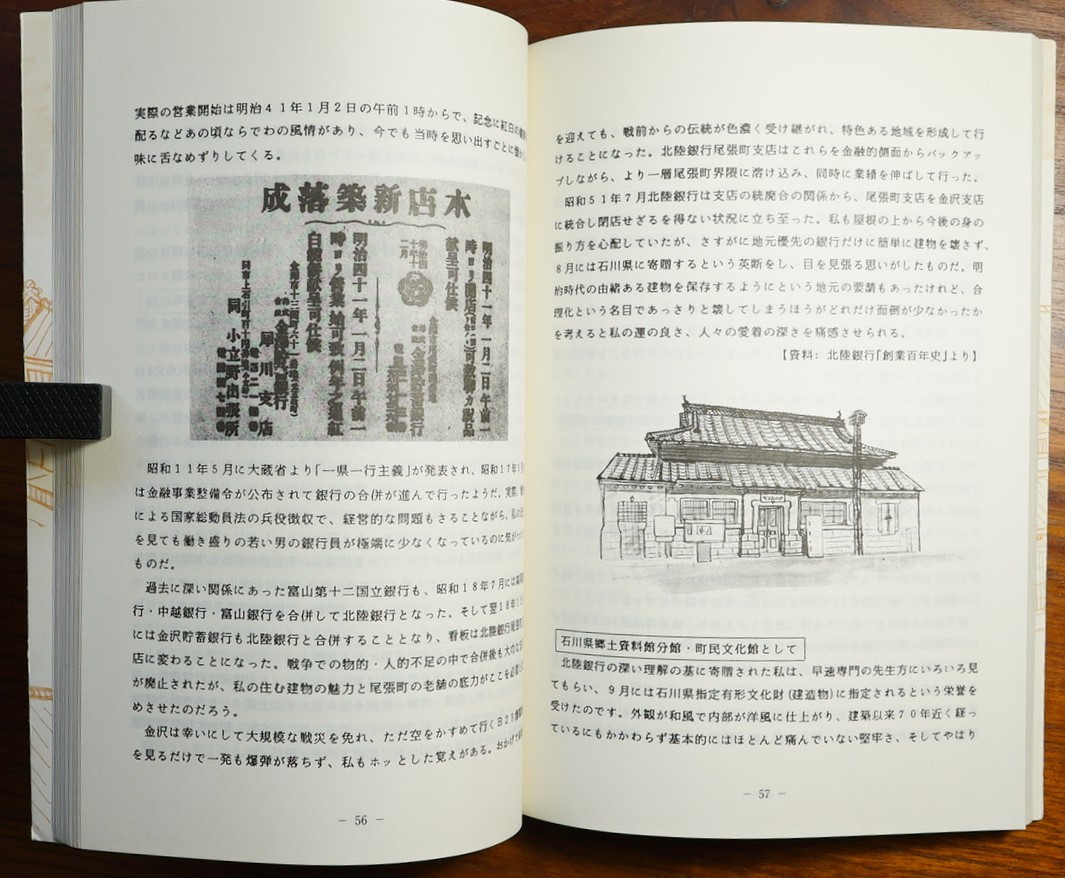 実際の営業開始は明治41年1月2日の午前1時からで、記念に紅白の
配るなどあの頃ならでわの風情があり、今でも当時を思い出すごとに
味に舌なめずりしてくる。
成落築新店本
明治四十一年一月二日午前一
時ヨリ開店
献呈可仕候
明治四十年十二月
明治四十一年一月二日午前一
時ヨリ営業始可致例年之通紅
白
献呈可仕候
犀川支店
同小立野出張所
昭和11年5月に大蔵省より「一県一行主義」が発表され、昭和17年
は金融事業整備令が公布されて銀行の合併が進んで行ったようだ。実際、
による国家総動員法の兵役徴収で、経営的な問題もさることながら、私の
を見ても働き盛りの若い男の銀行員が極端に少なくなっているのに気が
ものだ。
過去に深い関係にあった富山第十二国立銀行も、昭和18年7月には
行・中越銀行・富山銀行を合併して北陸銀行となった。そして翌18年
には金沢貯蓄銀行も北陸銀行と合併することとなり、看板は北陸銀行尾張
店に変わることになった。戦争での物的・人的不足の中で合併後も大巾な
が廃止されたが、私の住む建物の魅力と尾張町の老舗の底力がここを必要
めさせたのだろう。
金沢は幸いにして大規模な戦災を免れ、ただ空をかすめて行くB29
を見るだけで一発も爆弾が落ちず、私もホッとした覚えがある。おかげで
― 56 ―
を迎えても、戦前からの伝統が色濃く受け継がれ、特色ある地域を形成して行
けることになった。北陸銀行尾張町支店はこれらを金融的側面からバックアッ
プしながら、より一層尾張町界隈に溶け込み、同時に業績を伸ばして行った。
昭和51年7月北陸銀行は支店の統廃合の関係から、尾張町支店を金沢支店
に統合し閉店せざるを得ない状況に立ち至った。私も屋根の上から今後の身の
振り方を心配していたが、さすがに地元優先の銀行だけに簡単に建物を壊さず、
8月には石川県に寄贈するという英断をし、目を見張る思いがしたものだ。明
治時代の由緒ある建物を保存するようにという地元の要請もあったけれど、合
理化という名目であっさりと壊してしまうほうがどれだけ面倒が少なかったか
を考えると私の運の良さ、人々の愛着の深さを痛感させられる。
【資料: 北陸銀行「創業百年史」より】
石川県郷土資料館分館・町民文化館として
北陸銀行の深い理解の基に寄贈された私は、早速専門の先生方にいろいろ見
てもらい、9月には石川県指定有形文化財(建造物)に指定されるという栄誉を
受けたのです。外観が和風で内部が洋風に仕上がり、建築以来70年近く経っ
ているにもかかわらず基本的にはほとんど痛んでいない堅牢さ、そしてやはり
― 57 ―